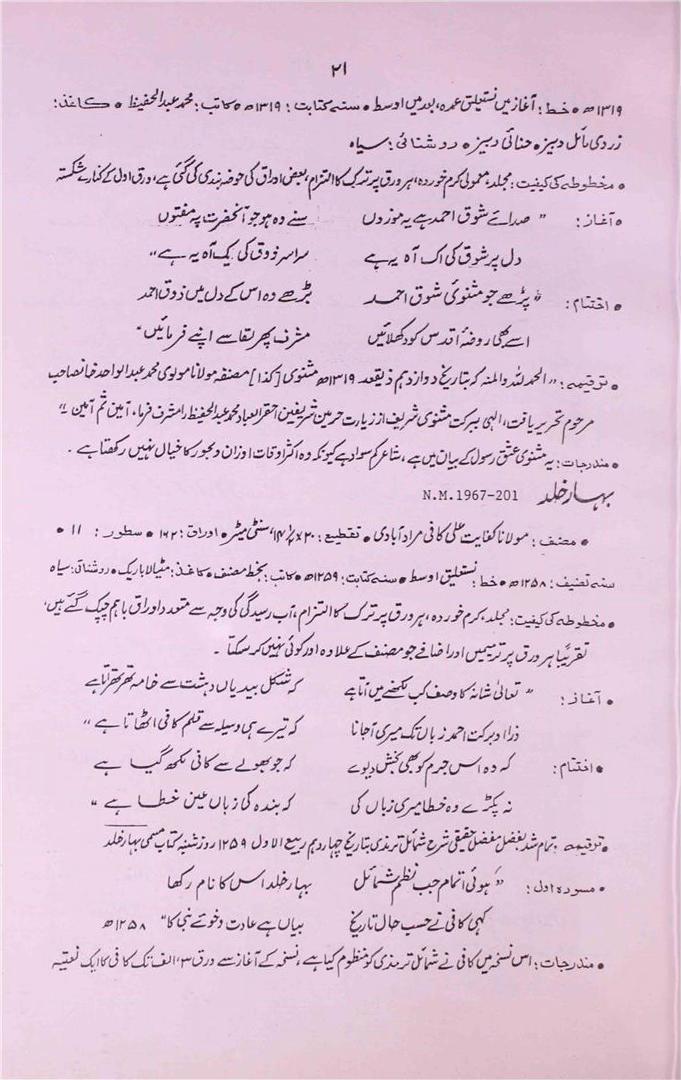 ۲۱
۱۳۱۹ھ • خط: آغاز میں نستعلیق عمدہ، بعد میں اوسط • سنہ کتابت: ۱۳۱۹ھ • کاتب: محمد عبدالحفیظ • کاغذ:
زردی مائل دبیز • حنائی دبیز • روشنائی: سیاہ
• مخطوطہ کی کیفیت: مجلد، معمولی کرم خوردہ، ہر ورق پر ترک کا التزام، بعض اوراق کی حوضہ بندی کی گئی ہے، ورق اول کے کنارے شکستہ
• آغاز: ” صدائے شوق احمد ہے یہ موزوں سنے وہ ہو جو آنحضرت پہ مفتوں
دل پر شوق کی اک آہ یہ ہے سراسر ذوق کی یک آہ یہ ہے “
• اختتام: ” پڑھے جو مثنوئ شوق احمد بڑھے وہ اس کے دل میں ذوق احمد
اسے بھی روضۂ اقدس کو دکھلائیں مشرف پھر لقا سے اپنے فرمائیں “
• ترقیمہ: ” الحمد للہ والمنہ کہ بتاریخ دوازدہم ذیقعد ۱۳۱۹ھ مثنوی [کذا] مصنفہ مولانا مولوی محمد عبدالواحد خانصاحب
مرحوم تحریر یافت، الٰہی ببرکت مثنوی شریف از زیارت حرمین شریفین احقر العباد محمد عبدالحفیظ را مشرف فرما، آمین ثم آمین “
• مندرجات: یہ مثنوی عشق رسول کے بیان میں ہے، شاعر کم سواد ہے کیونکہ وہ اکثر اوقات اوزان و بحور کا خیال نہیں رکھتا ہے۔
بہار خلد N.M.1967-201
• مصنف: مولانا کفایت علی کافی مراد آبادی • تقطیع: ۲۰x۱۴/۲ سنٹی میٹر • اوراق: ۱۶۲ • سطور: ۱۱ •
سنہ تصنیف: ۱۲۵۸ھ • خط: نستعلیق اوسط • سنہ کتابت: ۱۲۵۹ھ • کاتب: بخط مصنف • کاغذ: مٹیالا باریک • روشنائی: سیاہ
• مخطوطہ کی کیفیت: مجلد، کرم خوردہ، ہر ورق پر ترک کا التزام، آب رسیدگی کی وجہ سے متعدد اوراق باہم چپک گئے ہیں،
تقریباً ہر ورق پر ترمیمیں اور اضافے جو مصنف کے علاوہ اور کوئی نہیں کر سکتا۔
• آغاز: ” تعالیٰ شانہٗ کا وصف کب لکھنے میں آتا ہے کہ شکل بید یاں دہشت سے خامہ تھرتھراتا ہے
ذرا او برکت احمد زباں تک میری آجانا کہ تیرے ہی وسیلہ سے قلم کافی اٹھاتا ہے “
• اختتام: کہ وہ اس جرم کو بھی بخش دیوے کہ جو بھولے سے کافی لکھ گیا ہے
نہ پکڑے وہ خطا میری زباں کی کہ بندہ کی زباں عین خطا ہے “
• ترقیمہ: تمام شد بفضل مفضل حقیقی شرح شمائل ترمذی بتاریخ چہاردہم ربیع الاول ۱۲۵۹ روز شنبہ کتاب مسمی بہار خلد
• مسودہ اول: ” ہوئی اتمام جب نظم شمائل بہار خلد اس کا نام رکھا
کہی کافی نے حسب حال تاریخ بیاں ہے عادت و خوئے نبی کا “ ۱۲۵۸ھ
• مندرجات: اس نسخہ میں کافی نے شمائل ترمذی کو منظوم کیا ہے، نسخہ کے آغاز سے ورق ۳، الف تک کافی کا ایک نعتیہ